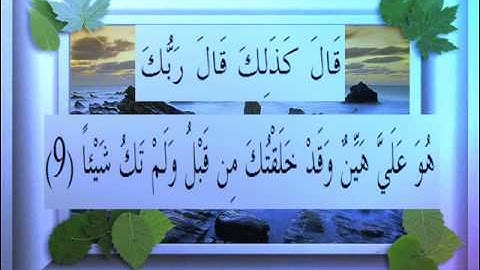 قَالَ كَذَلِكَ قَالَ رَبُّكَ
هُوَ عَلَيَّ هَيِّنٌ وَقَدْ خَلَقْتُكَ مِن قَبْلُ وَلَمْ تَكُ شَيْئاً (9)